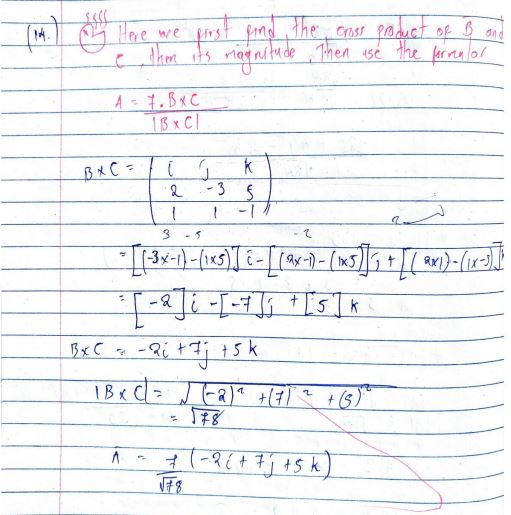 (14.) Here we first find the cross product of B and
C, then its magnitude, Then use the formular
A = 7.B×C
|B×C|
B×C = ( i j k
2 -3 5
1 1 -1 )
3 -5 -2
= [(-3×-1)-(1×5)] i - [(2×-1)-(1×5)] j + [(2×1)-(1×-3)] k
= [-2] i - [-7] j + [5] k
B×C = -2i + 7j + 5k
|B×C| = √(-2)² + (7)² + (5)²
= √78
A = 7 (-2i + 7j + 5k)
√78